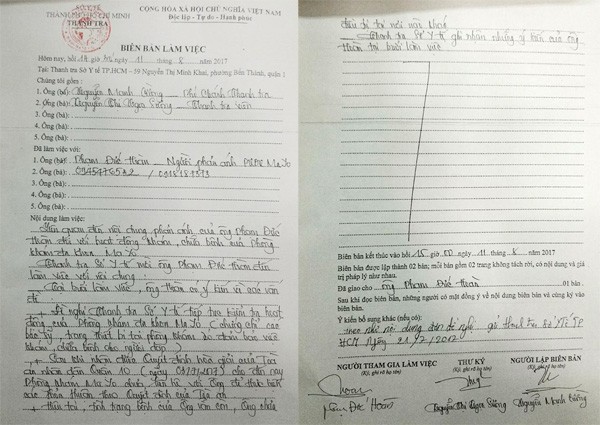 SỞ Y TẾ
THÀNH PHỐ HỒ CHÍ MINH
THANH TRA
CỘNG HÒA XÃ HỘI CHỦ NGHĨA VIỆT NAM
Độc lập - Tự do - Hạnh phúc
BIÊN BẢN LÀM VIỆC
Hôm nay, hồi 14 giờ 00 ngày 11 tháng 8 năm 2017
Tại: Thanh tra Sở Y tế TP.HCM – 59 Nguyễn Thị Minh Khai, phường Bến Thành, quận 1
Chúng tôi gồm :
1. Ông (bà) Nguyễn Mạnh Cường Phó Chánh Thanh tra
2. Ông (bà) Nguyễn Thị Ngọc Sương Thanh tra viên
3. Ông (bà):
4. Ông (bà):
5. Ông (bà):
Đã làm việc với:
1. Ông (bà) Phạm Đức Hoàn Người phản ánh PKĐK Mayo
2. Ông (bà)
3. Ông (bà):
4. Ông (bà):
5. Ông (bà):
Nội dung làm việc:
Liên quan đến nội dung phản ánh của ông Phạm Đức
Hoàn đối với hoạt động khám, chữa bệnh của phòng
khám đa khoa Mayo
Thanh tra Sở Y tế mời ông Phạm Đức Hoàn đến
làm việc với nội dung:
Tại buổi làm việc, ông Hoàn có ý kiến về các vấn
đề:
+ Đề nghị Thanh tra Sở Y tế tiếp tục kiểm tra hoạt
động của Phòng khám đa khoa Mayo
trang thiết bị tại phòng khám
khám, chữa bệnh cho người dân
+ Sau khi nhận Quyết định hòa giải của Tòa
án nhân dân Quận 10 cho đến nay
Phòng khám Mayo chưa liên hệ với ông để thực hiện
các theo Quyết định của Tòa án
+ Hiện tại, tình trạng bệnh của ông vẫn còn, ông phải
điều trị tại nơi khác
Thanh tra Sở Y tế ghi nhận những ý kiến của ông
Hoàn tại buổi làm việc
Biên bản kết thúc vào hồi 15 giờ 00 ngày 11 tháng 8 năm 2017
Biên bản được lập thành 02 bản; mỗi bản gồm 02 trang không tách rời, có nội dung và giá
trị pháp lý như nhau.
Đã giao cho ông Phạm Đức Hoàn 01 bản.
Sau khi đọc biên bản, những người có mặt đồng ý về nội dung biên bản và cùng ký vào
biên bản.
Ý kiến bổ sung khác (nếu có):
theo như nội dung đơn đề nghị gửi thanh tra Sở Y Tế TP
HCM Ngày
NGƯỜI THAM GIA LÀM VIỆC THƯ KÝ NGƯỜI LẬP BIÊN BẢN
(Ký, ghi rõ họ tên) (Ký, ghi rõ họ tên) (Ký, ghi rõ họ tên)
Phạm Đức Hoàn Nguyễn Thị Ngọc Sương Nguyễn Mạnh Cường